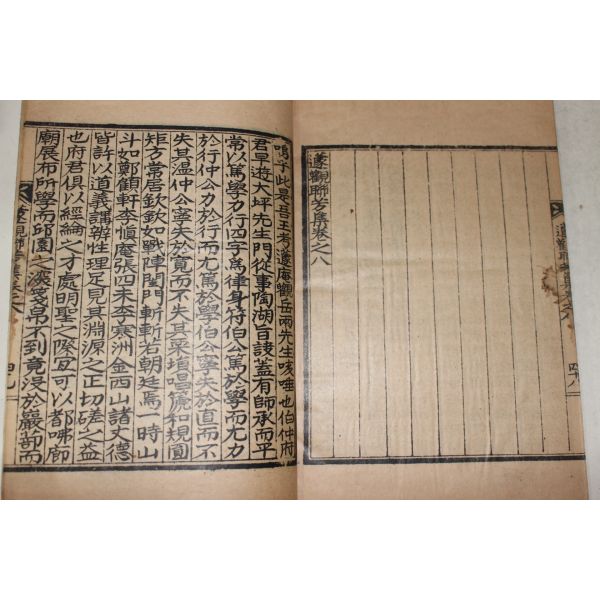 遯觀聯芳集卷之八
四十八
遯觀聯芳集卷之八
嗚乎此是吾王考遯庵觀岳兩先生咳唾也伯仲府
君早遊大坪先生門從事陶湖旨訣蓋有師承而平
常以篤學力行四字爲律身符伯公篤於學而尤力
於行仲公力於行而尤篤於學伯公寧失於直而不
失其溫仲公寧失於寬而不失其栗塤唱箎和規圓
矩方常居欽欽如戰陣閨門斬斬若朝廷焉一時山
斗如鄭顧軒李愼庵張四未李寒洲金西山諸丈德
皆許以道義講辨性理足見其淵源之正切磋之益
也府君俱以經綸之才處明聖之際宜可以都咈廊
廟展布所學而邱園之深戔帛不到竟沒於巖蔀而
遯觀聯芳集卷之八
四十九